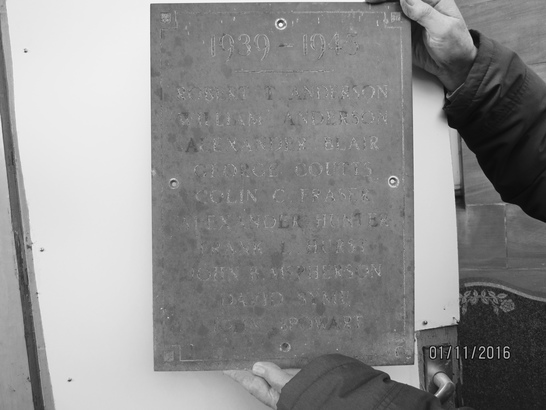 1939 - 1945
ROBERT T ANDERSON
WILLIAM ANDERSON
ALEXANDER BLAIR
GEORGE COUTTS
COLIN C FRASER
ALEXANDER HUNTER
FRANK
JOHN
DAVID
01/11/2016